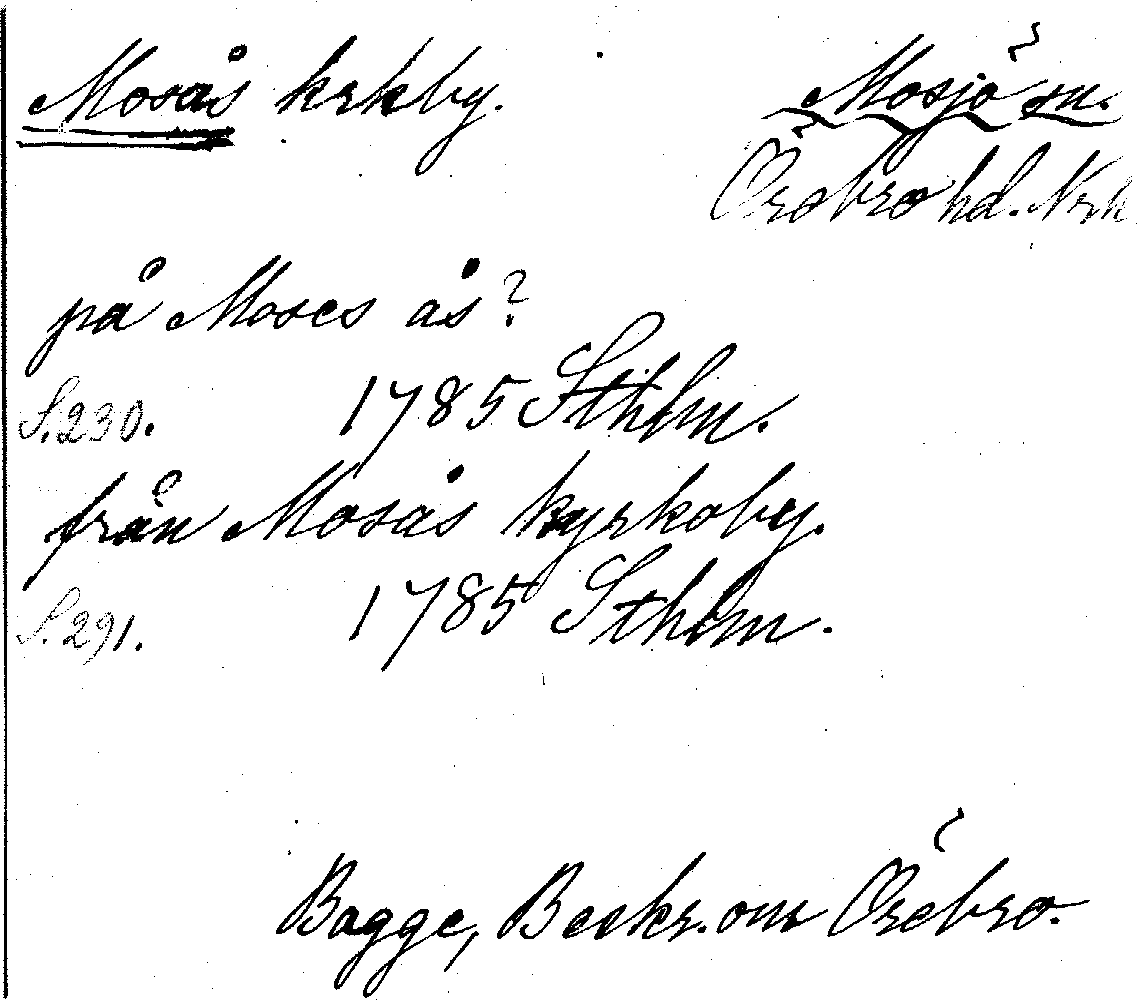 Mosås krkby.
Mosjö sn.
Örebro hd. Nrk
på Moses ås?
S. 230. 1785 Sthlm.
från Mosås kyrkoby.
S. 291. 1785 Sthlm.
Bagge, Beskr. om Örebro.